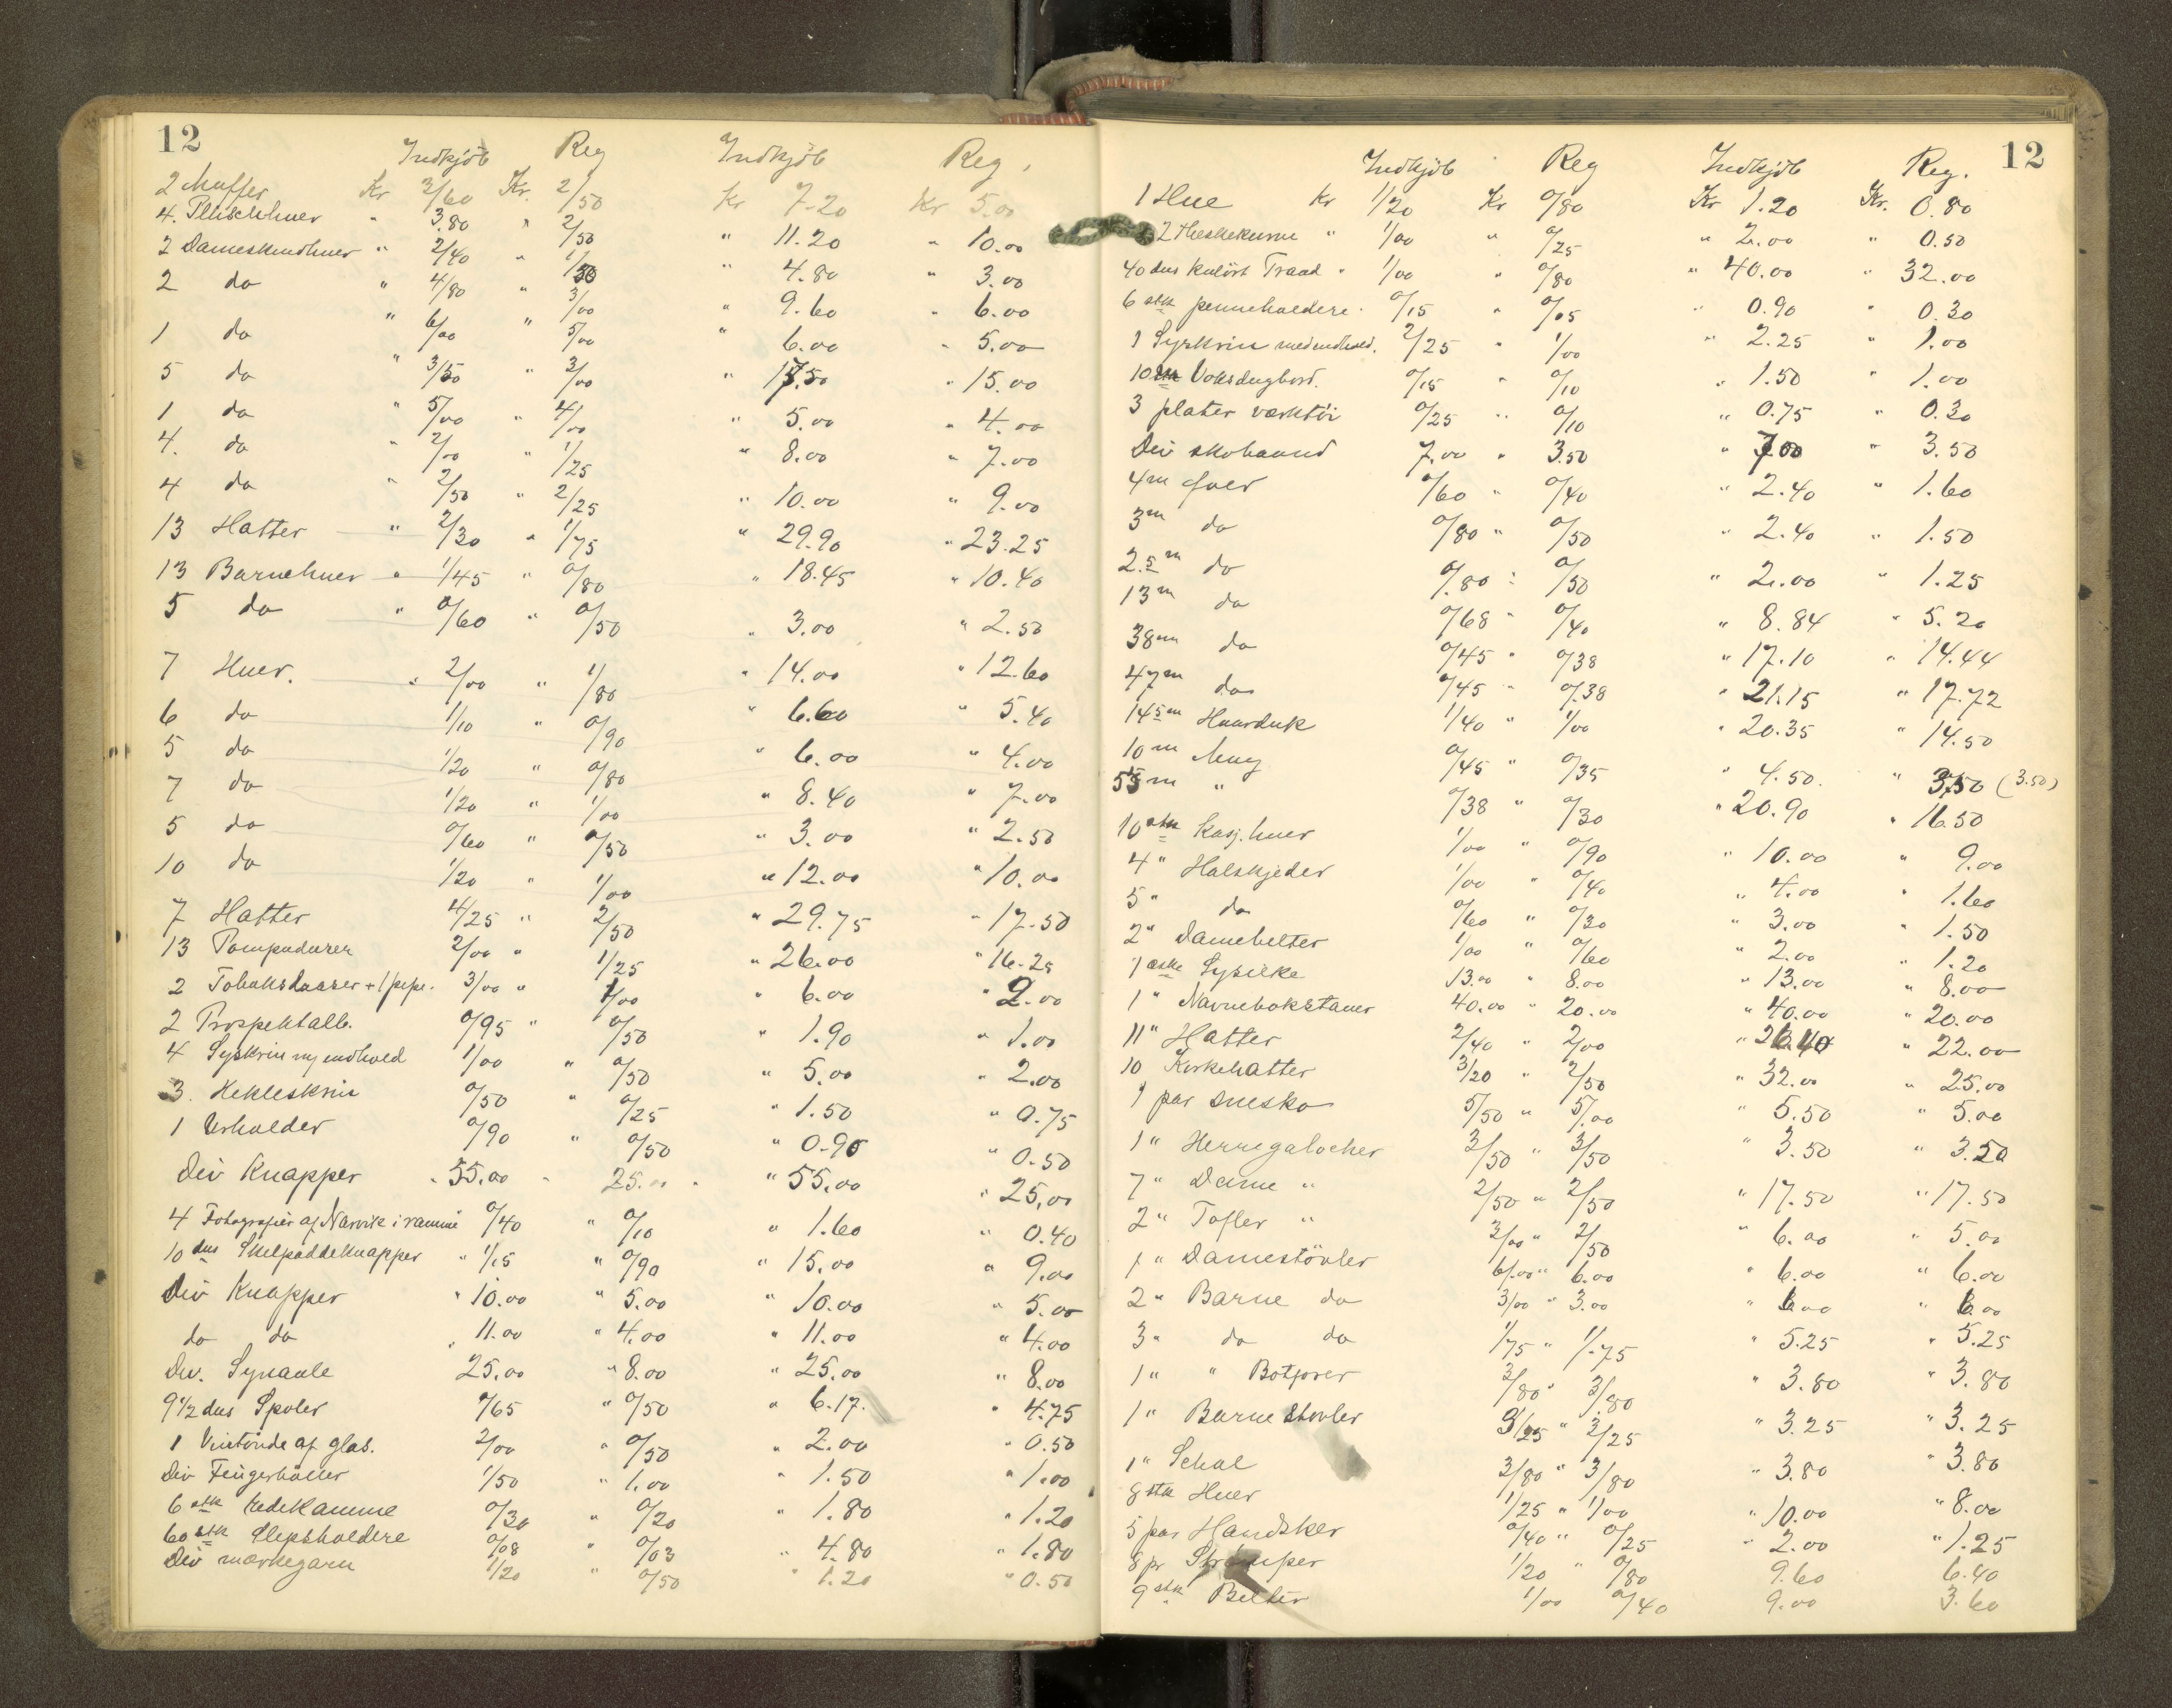 12
Indkjöb Reg Indkjöb Reg.
2 Muffer Kr 3/60 Kr. 2/50 Kr 7-20 Kr 5.00
4. Plüschhuer " 3.80 " 2/50 " 11.20 " 10.00
2 Dameskindhuer " 2/40 " 1/50 " 4.80 " 3.00
2 do " 4/80 " 3/00 " 9.60 " 6.00
1 do " 6/00 " 5/00 " 6.00 " 5.00
5 do " 3/50 " 3/00 " 17.50 " 15.00
1 do " 5/00 " 4/00 " 5.00 " 4.00
4. do " 2/00 " 1/25 " 8.00 " 7.00
4 do " 2/50 " 2/25 " 10.00 " 9.00
13 Hatter " 2/30 " 1/75 " 29.90 " 23.25
13 Barnehuer " 1/45 " 0/80 " 18.45 " 10.40
5 do " 0/60 " 0/50 " 3.00 " 2.50
7 Huer. " 2/00 " 1/80 " 14.00 " 12.60
6 do 1/10 " 0/90 " 6.60 " 5.40
5 do 1/20 " 0/80 " 6.00 " 4.00
7 do 1/20 " 1/00 " 8.40 " 7.00
5 do 0/60 " 0/50 " 3.00 " 2.50
10 do 1/20 " 1/00 " 12.00 " 10.00
7 Hatter 4/25 " 2/50 " 29.75 " 17.50
13 Pompadurer 2/00 " 1/25 " 26.00 " 16-25
2 Tobaksdaaser + 1 pipe. 3/00 " 1/00 " 6.00 " 2.00
2 Prospektalb. 0/95 " 0/50 " 1.90 " 1.00
4 Syskrin m/ indhold 1/00 " 0/50 " 5.00 " 2.00
3. Hekleskrin 0/50 " 0/25 " 1.50 " 0.75
1 Urholder 0/90 " 0/50 " 0.90 " 0.50
Div Knapper " 55.00 " 25.00 " 55.00 " 25.00
4 Fotografier af Narvik i ramme 0/40 " 0/10 " 1.60 " 0.40
10 dus Skelpaddeknapper " 1/15 " 0/90 " 15.00 " 9.00
Div Knapper " 10.00 " 5.00 " 10.00 " 5.00
do do " 11.00 " 4.00 " 11.00 " 4.00
Div. Synaale 25.00 " 8.00 " 25.00 " 8.00
9 1/2 dus Spoler 0/65 " 0/50 " 6.17. " 4.75
1 Vintönde af glas. 2/00 " 0/50 " 2.00 " 0.50
Div Fingerböller 1/50 " 1.00 " 1.50 " 1.00
6 stk Redekamme 0/30 " 0/20 " 1.80 " 1.20
60 stk Slipsholdere 0/08 " 0/03 " 4.80 " 1.80
Div mærkegarn 1/20 " 0/50 " 1.20 " 0.50
12
Indkjöb Reg Indkjöb Reg.
1 Hue Kr 1/20 Kr 0/80 Kr 1.20 Kr. 0.80
2 " 1/00 " 0/25 " 2.00 " 0.50
40 dus kulört Traad " 1/00 " 0/80 " 40.00 " 32.00
6 stk penneholdere. 0/15 " 0/05 " 0.90 " 0.30
1 Syskrin med indhold. 2/25 " 1/00 " 2.25 " 1.00
10 m Voksdugbord. 0/15 " 0/10 " 1.50 " 1.00
3 plater værktöi 0/25 " 0/10 " 0.75 " 0.30
Div skobaand 7.00 " 3.50 " 7.00 " 3.50
4 m foer 0/60 " 0/40 " 2.40 " 1.60
3 m do 0/80 " 0/50 " 2.40 " 1.50
2.5 m do 0/80 " 0/50 " 2.00 " 1.25
13 m do 0/68 " 0/40 " 8.84 " 5.20
38 m do 0/45 " 0/38 " 17.10 " 14.44
47 m do 0/45 " 0/38 " 21.15 " 17.72
14 5 m Haarduk 1/40 " 1/00 " 20.35 " 14.50
10 m Muy 0/45 " 0/35 " 4.50. " 3.50 (3.50)
55 m " 0/38 " 0/30 " 20.90 " 16.50
10 stk Kasj. huer 1/00 " 0/90 " 10.00 " 9.00
4 " Halskjeder 1/00 " 0/40 " 4.00 " 1.60
5 " do 0/60 " 0/30 " 3.00 " 1.50
2 " Damebelter 1/00 " 0/60 " 2.00 " 1.20
1 æske Sysilke 13.00 " 8.00 " 13.00 " 8.00
1 " Navnebokstaver 40.00 " 20.00 " 40.00 " 20.00
11 " Hatter 2/40 " 2/00 " 26.40 " 22.00
10 Kirkehatter 3/20 " 2/50 " 32.00 " 25.00
1 par snesko 5/50 " 5/00 " 5.50 " 5.00
1 " Herregalocher 3/50 " 3/50 " 3.50 " 3.50
7 " Dame " 2/50 " 2/50 " 17.50 " 17.50
2 " Tofler " 3/00 " 2/50 " 6.00 " 5.00
1 " Damestövler 6/00 " 6.00 " 6.00 " 6.00
2 " Barne do 3/00 " 3.00 " 6.00 " 6.00
3 " do do 1/75 " 1/.75 " 5.25 " 5.25
1 " " Botforer 3/80 " 3/.80 " 3.80 " 3.80
1 " Barne Stovler 3/25 " 3/25 " 3.25 " 3.25
1 " Schal 3/80 " 3/80 " 3.80 " 3.80
8 stk Huer 1/25 " 1/00 " 10.00 " 8.00
5 par Handsker 0/40 " 0/25 " 2.00 " 1.25
8 pr Strömper 1/20 " 0/80 9.60 6.40
9 stk Belter 1/00 0/40 9.00 3.60